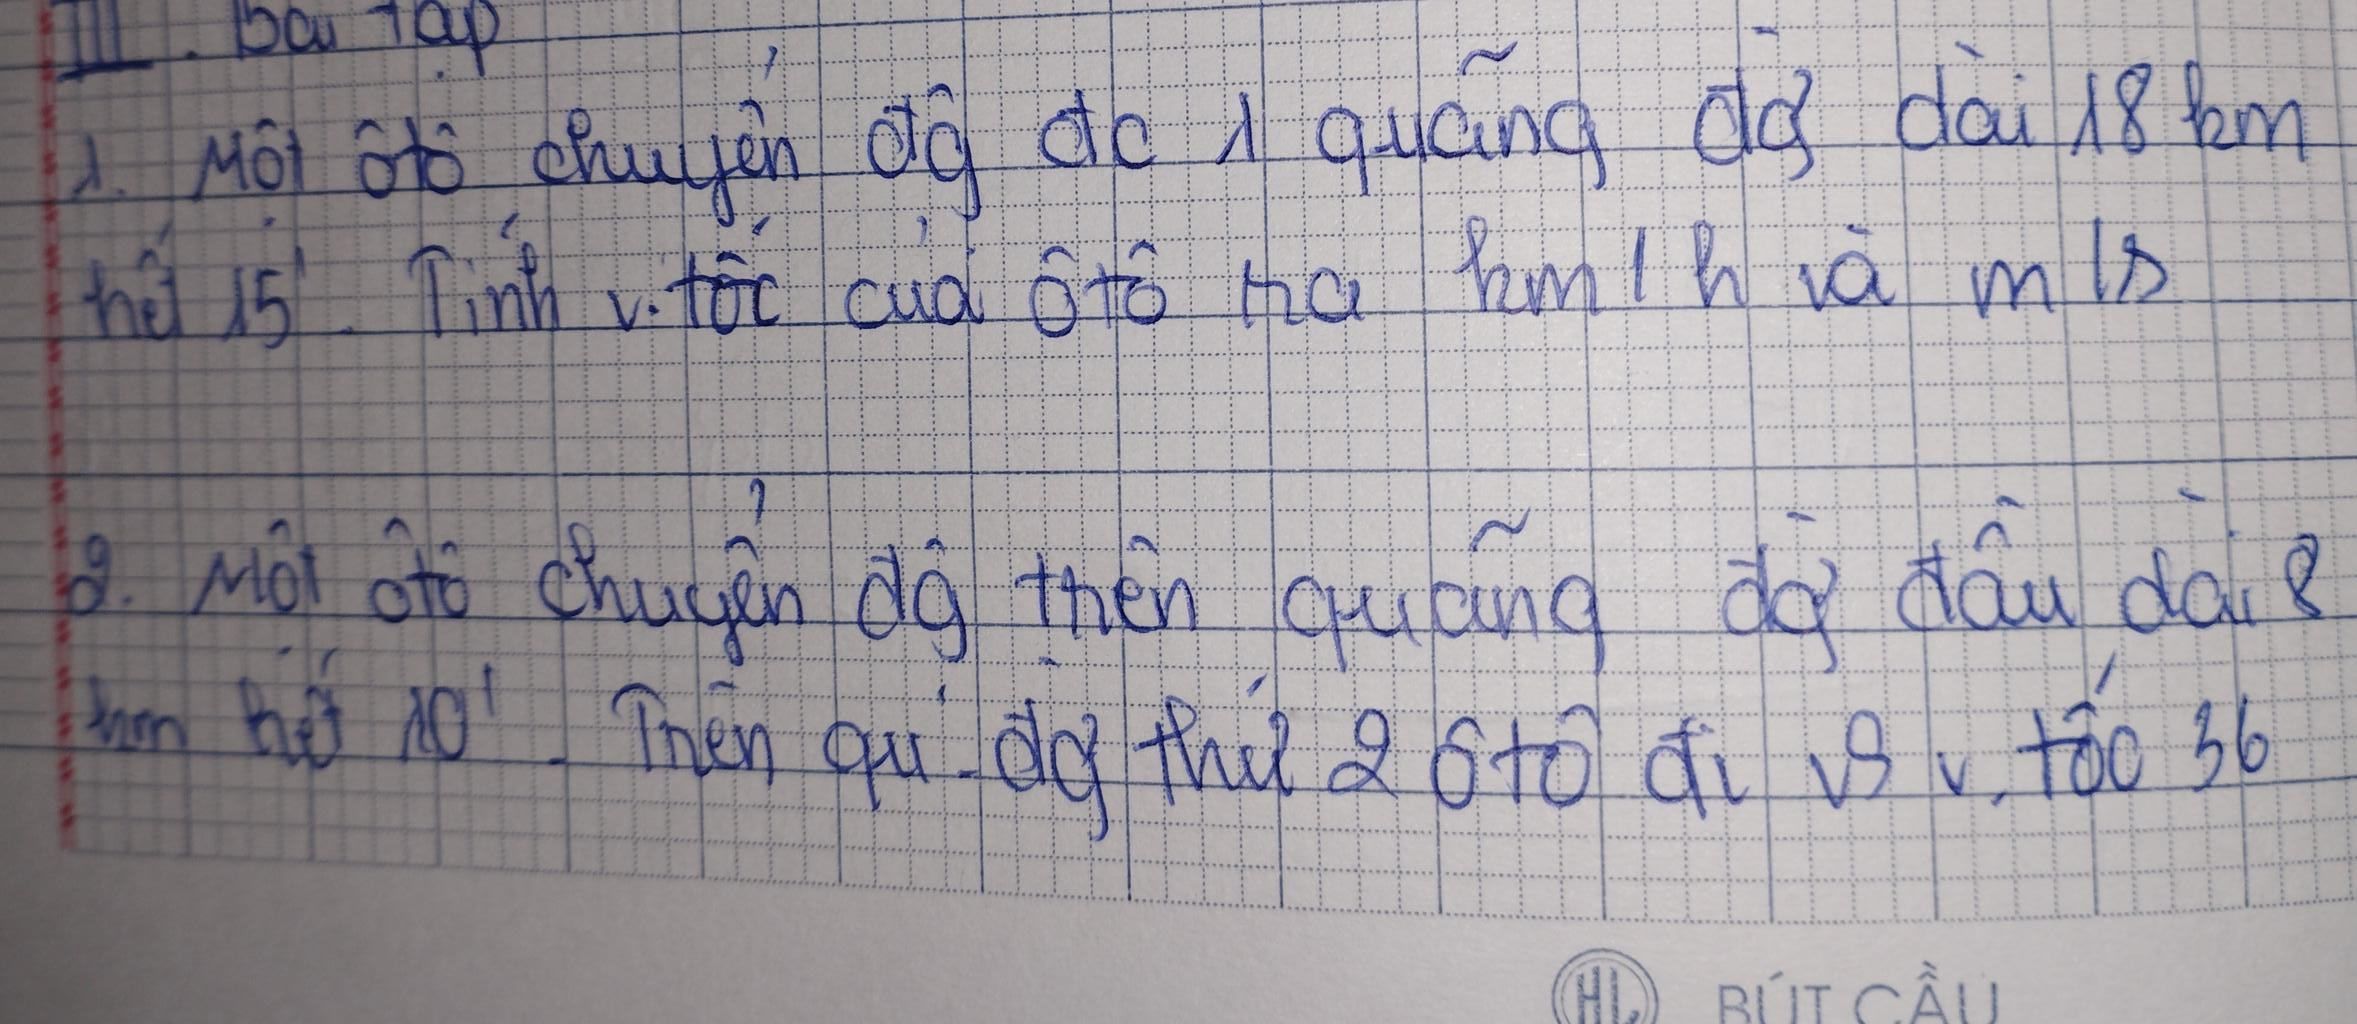 III. Bài tập
1. Một ôtô chuyển độg đc 1 quãng đg̀ dài 18 km
hết 15'. Tính v. tốc của ôtô ra km/h và m/s
2. Một ôtô chuyển độg trên quãng đg̀ đầu dài 8
km hết 10'. Trên qu~. đg̀ thứ 2 ôtô đi vs v. tốc 36
HL BÚT CẦU